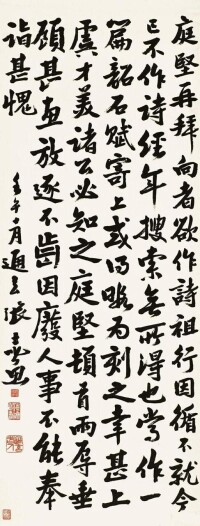 庭堅再拜向者欲作詩祖行因循不就今
已不作詩經年搜索無所得也嘗作一
篇韶石賦寄上或得暇為刻之幸甚上
虞才美諸公必知之庭堅頓首兩辱垂
顧甚惠放逐不齒因廢人事不能奉
詣甚愧
壬午月